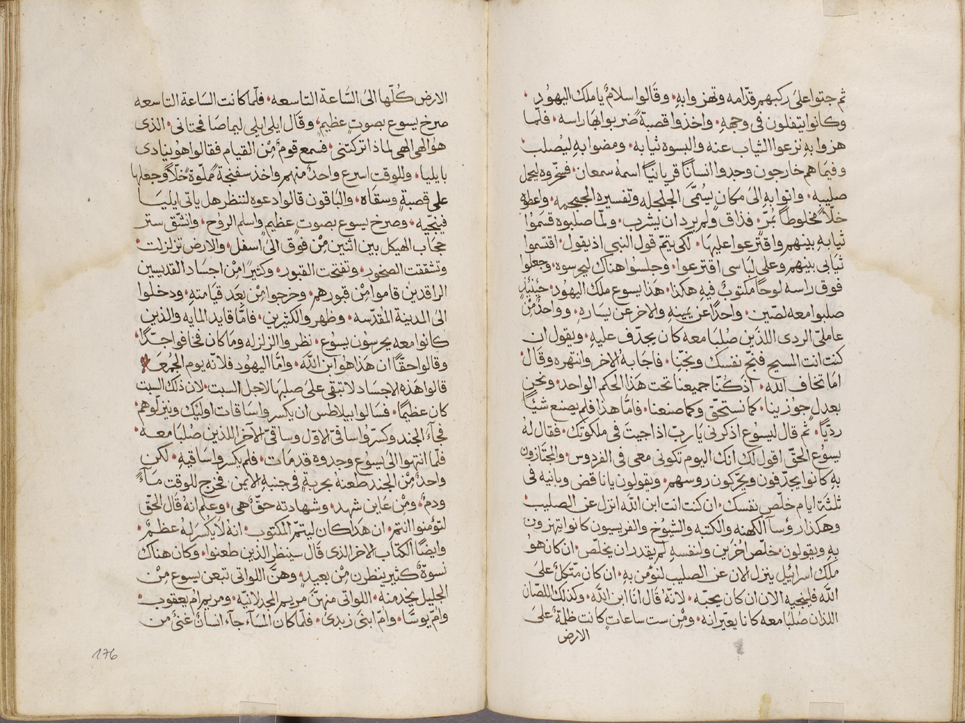 ثم جثوا على ركبهم قدامه وتهزوا به وقالوا سلام يا ملك اليهود
وكانوا يتفلون في وجهه واخذوا قصبة ضربوا بها راسه فلما
هزوا به نزعوا الثياب عنه والبسوه ثيابه ومضوا به ليصلب
وفيما هم خارجون وجدوا انسانا قريانيا اسمه سمعان فسخروه ليحمل
صليبه واتوا به الى مكان يسمى الجلجله وتفسيره الجمجمه واعطوه
خلا مخلوطا بمر فذاق ولم يرد ان يشرب ولما صلبوه قسموا
ثيابه بينهم واقترعوا عليها لكي يتم قول النبي اذ يقول اقتسموا
ثيابي بينهم وعلى لباسي اقترعوا وجلسوا هناك ليحرسوه وجعلوا
فوق راسه لوحا مكتوب فيه هكذا هذا يسوع ملك اليهود حينيذ
صلبوا معه لصين واحدا عن يمينه والاخر عن يساره وواحد من
عاملي الردى اللذين صلبا معه كان يجدف عليه ويقول ان
كنت انت المسيح فنج نفسك ونجنا فاجابه الاخر وانتهره وقال
اما تخاف الله اذ كنا جميعنا تحت هذا الحكم الواحد ونحن
بعدل جوزينا كما نستحق وكما صنعنا فاما هذا فلم يصنع شيئا
رديا ثم قال ليسوع اذكرني يا رب اذا جيت في ملكوتك فقال له
يسوع الحق اقول لك انك اليوم تكون معي في الفردوس والمجتازون
به كانوا يجدفون ويحركون روسهم ويقولون يا ناقض وبانيه في
ثلثة ايام خلص نفسك ان كنت انت ابن الله انزل عن الصليب
وهكذا روسا الكهنه والكتبه والشيوخ والفريسيون كانوا يتهزون
به ويقولون خلص اخرين ولنفسه لم يقدر ان يخلص ان كان هو
ملك اسرائيل ينزل الان عن الصليب لنؤمن به ان كان متكلا على
الله فلينجيه الان ان كان يحبه لانه قال انا ابن الله وكذلك اللصان
اللذان صلبا معه كانا يعيرانه ومن ست ساعات كانت ظلمة على
الارض
الارض كلها الى الساعة التاسعه فلما كانت الساعة التاسعه
صرخ يسوع بصوت عظيم وقال ايلي ايلي ليما صافختاني الذي
هو الهي الهي لماذا تركتني فسمع قوم من القيام فقالوا هو ينادي
بايليا وللوقت اسرع واحد منهم واخذ سفنجة مملوة خلا وجعلها
على قصبة وسقاه والباقون قالوا دعوه لننظر هل ياتي ايليا
فينجيه وصرخ يسوع بصوت عظيم واسلم الروح وانشق ستر
حجاب الهيكل بين اثنين من فوق الى اسفل والارض تزلزلت
وتشققت الصخور وتفتحت القبور وكثيرا من اجساد القديسين
الراقدين قاموا من قبورهم وخرجوا من بعد قيامته ودخلوا
الى المدينة المقدسه وظهروا لكثيرين فاما قايد المايه والذين
كانوا معه يحرسون يسوع نظروا الزلزله وما كان فخافوا جدا
وقالوا حقا ان هذا هو ابن الله واما اليهود فلانه يوم الجمعه
قالوا هذه الاجساد لا تبقى على صلبها لاجل السبت لان ذلك السبت
كان عظيما فسالوا بيلاطس ان يكسروا ساقات اوليك وينزلوهم
فجاء الجند وكسروا ساقي الاول وساقي الاخر اللذين صلبا معه
فلما انتهوا الى يسوع وجدوه قد مات فلم يكسروا ساقيه لكن
واحد من الجند طعنه بحربة في جنبه الايمن فخرج للوقت ماء
ودم ومن عاين شهد وشهادته حق هي وعلم انه قال الحق
لتؤمنوا انتم ان هذا كان ليتم المكتوب انه لا يكسر له عظم
وايضا الكتاب الاخر الذي قال سينظر الذين طعنوا وكان هناك
نسوة كثير ينظرن من بعيد وهن اللواتي تبعن يسوع من
الجليل يخدمنه اللواتي منهن مريم المجدلانيه ومريم ام يعقوب
وام يوسا وام ابني زبدى فلما كان المساء جاء انسان غني من
176